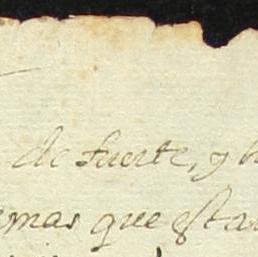 de fuerte, y h
emas que estan